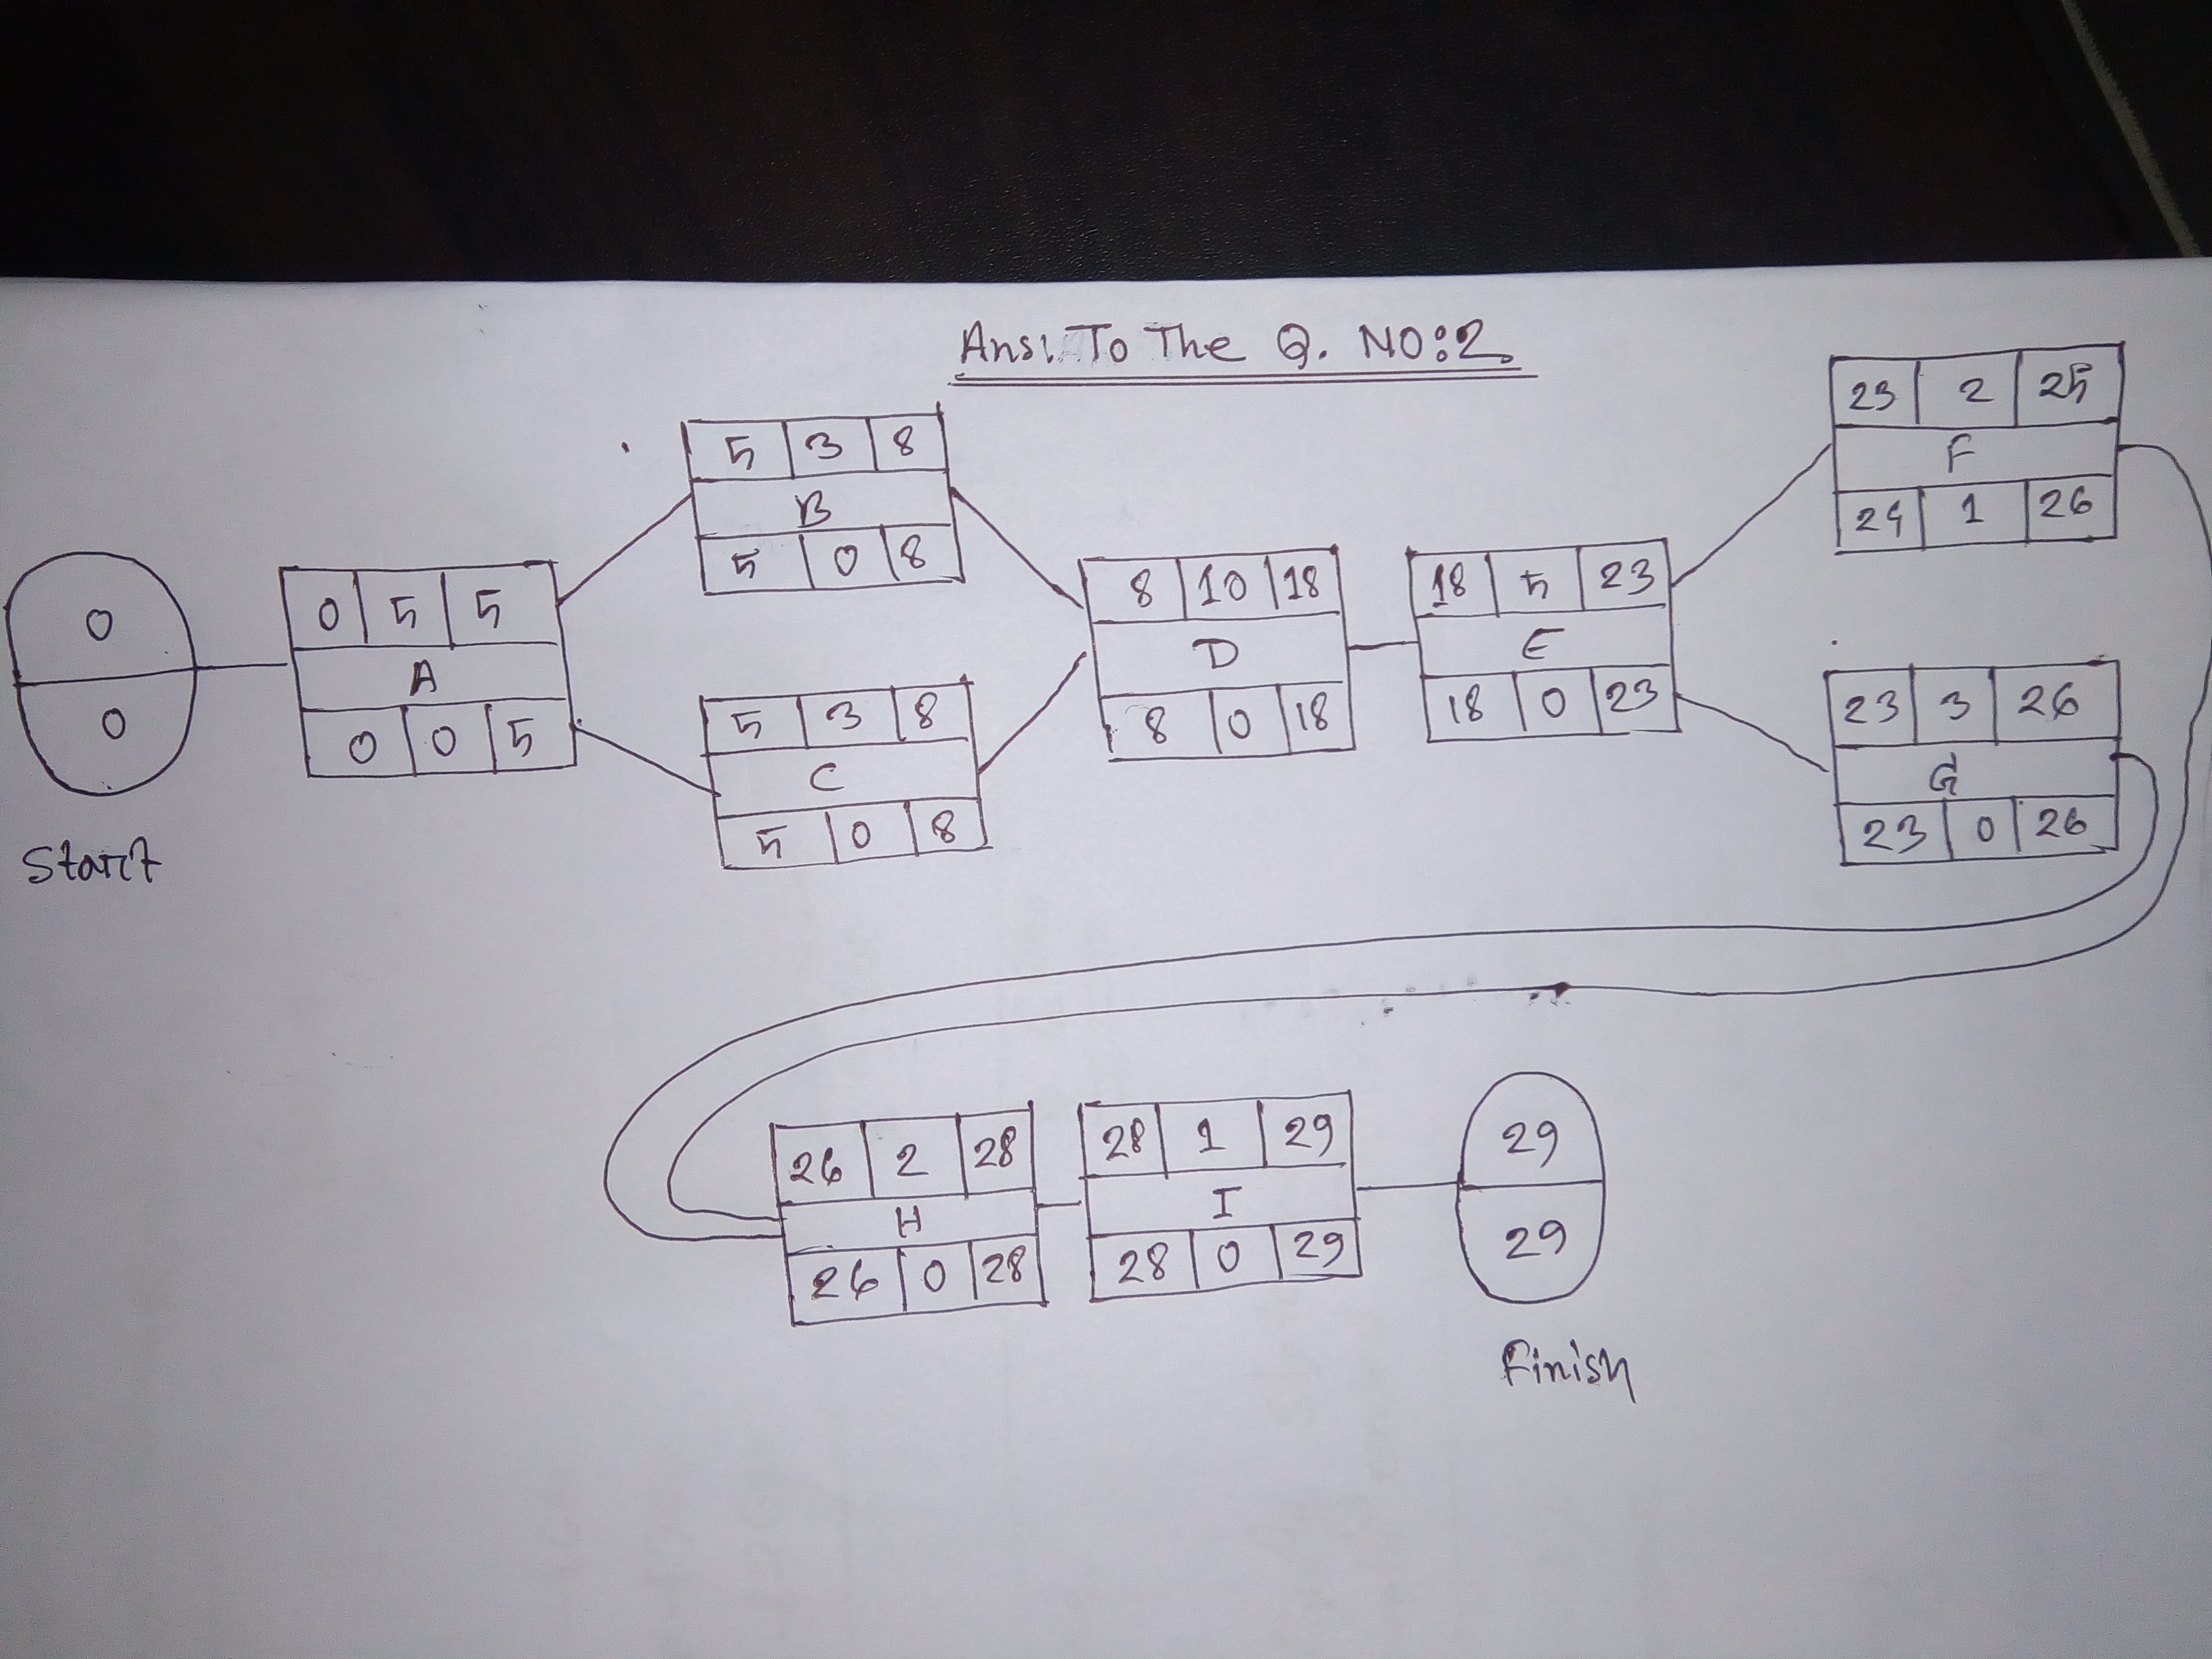 Ans: To The Q. NO:2
0
0
Start
0 5 5
A
0 0 5
5 3 8
B
5 0 8
5 3 8
C
5 0 8
8 10 18
D
8 0 18
18 5 23
E
18 0 23
23 2 25
F
24 1 26
23 3 26
G
23 0 26
26 2 28
H
26 0 28
28 1 29
I
28 0 29
29
29
Finish